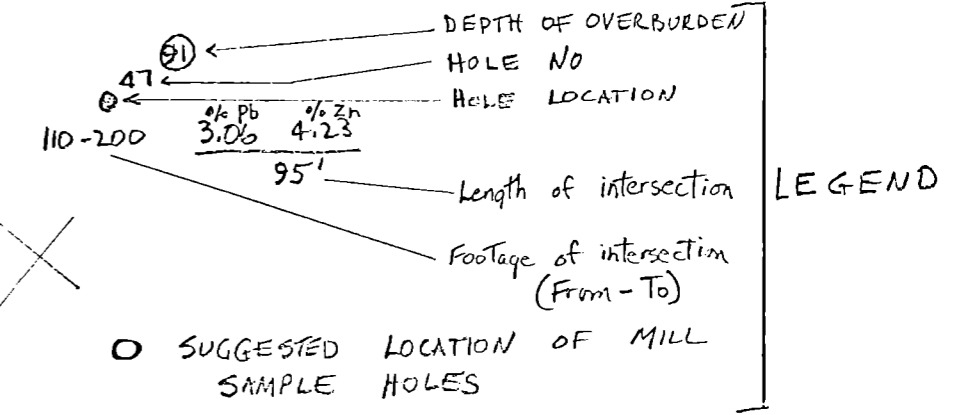 DEPTH OF OVERBURDEN
91
HOLE NO
47
HOLE LOCATION
% Pb % Zn
110-200 3.06 4.23
95'
Length of intersection
LEGEND
Footage of intersection
(From - To)
O SUGGESTED LOCATION OF MILL
SAMPLE HOLES